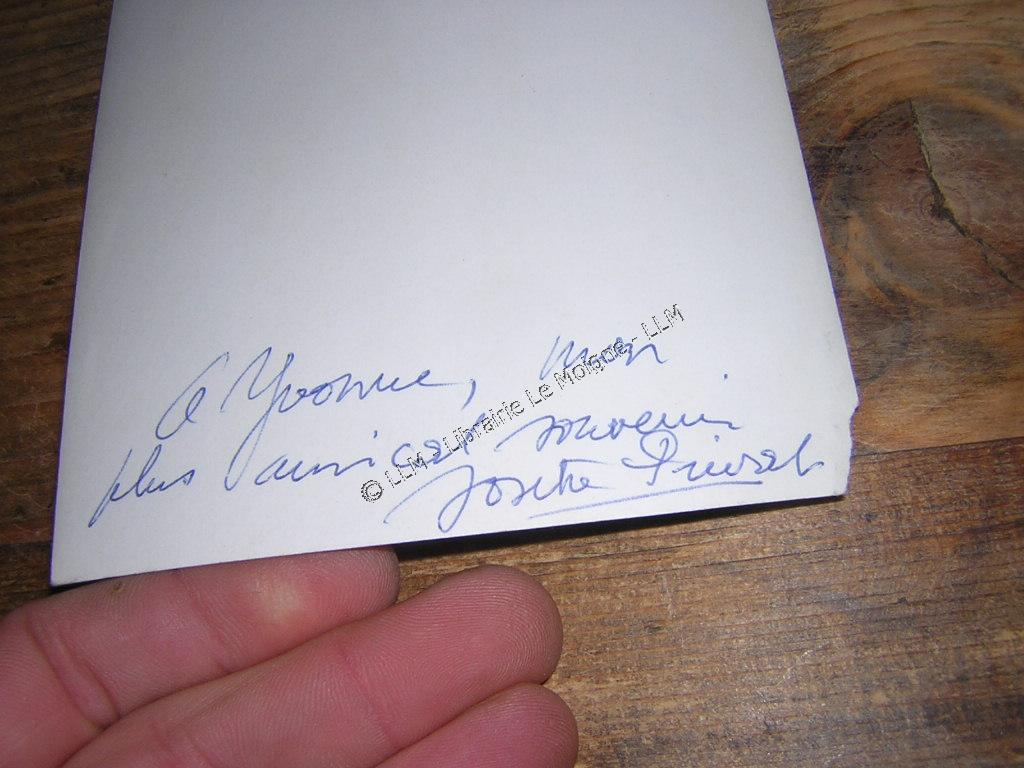 A Yvonne, mon
plus amical souvenir
Josette Privat
© LLM - Librairie Le Moigne - LLM